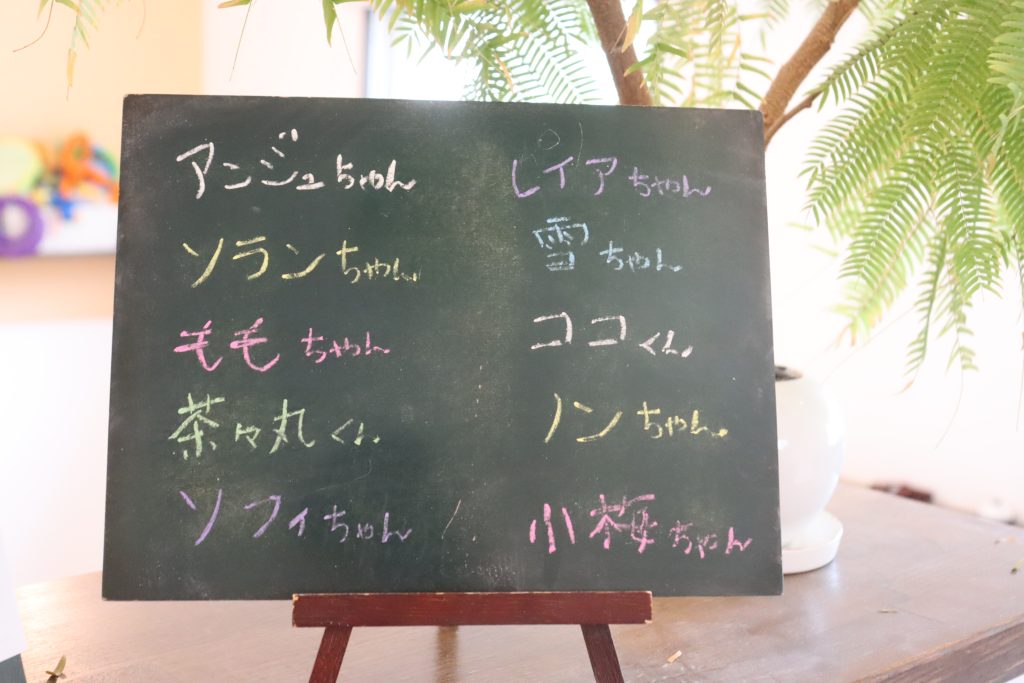 アンジュちゃん
ソランちゃん
毛毛ちゃん
茶々丸くん
ソフィちゃん
レイアちゃん
雪ちゃん
ココくん
ノンちゃん
小梅ちゃん